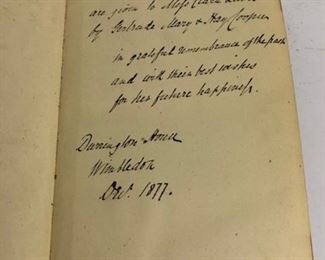 are given to Miss Clara
by Gertrude Mary & Hay
in grateful remembrance of the past
and with their best wishes
for her future happiness.
House
Wimbledon
1877.